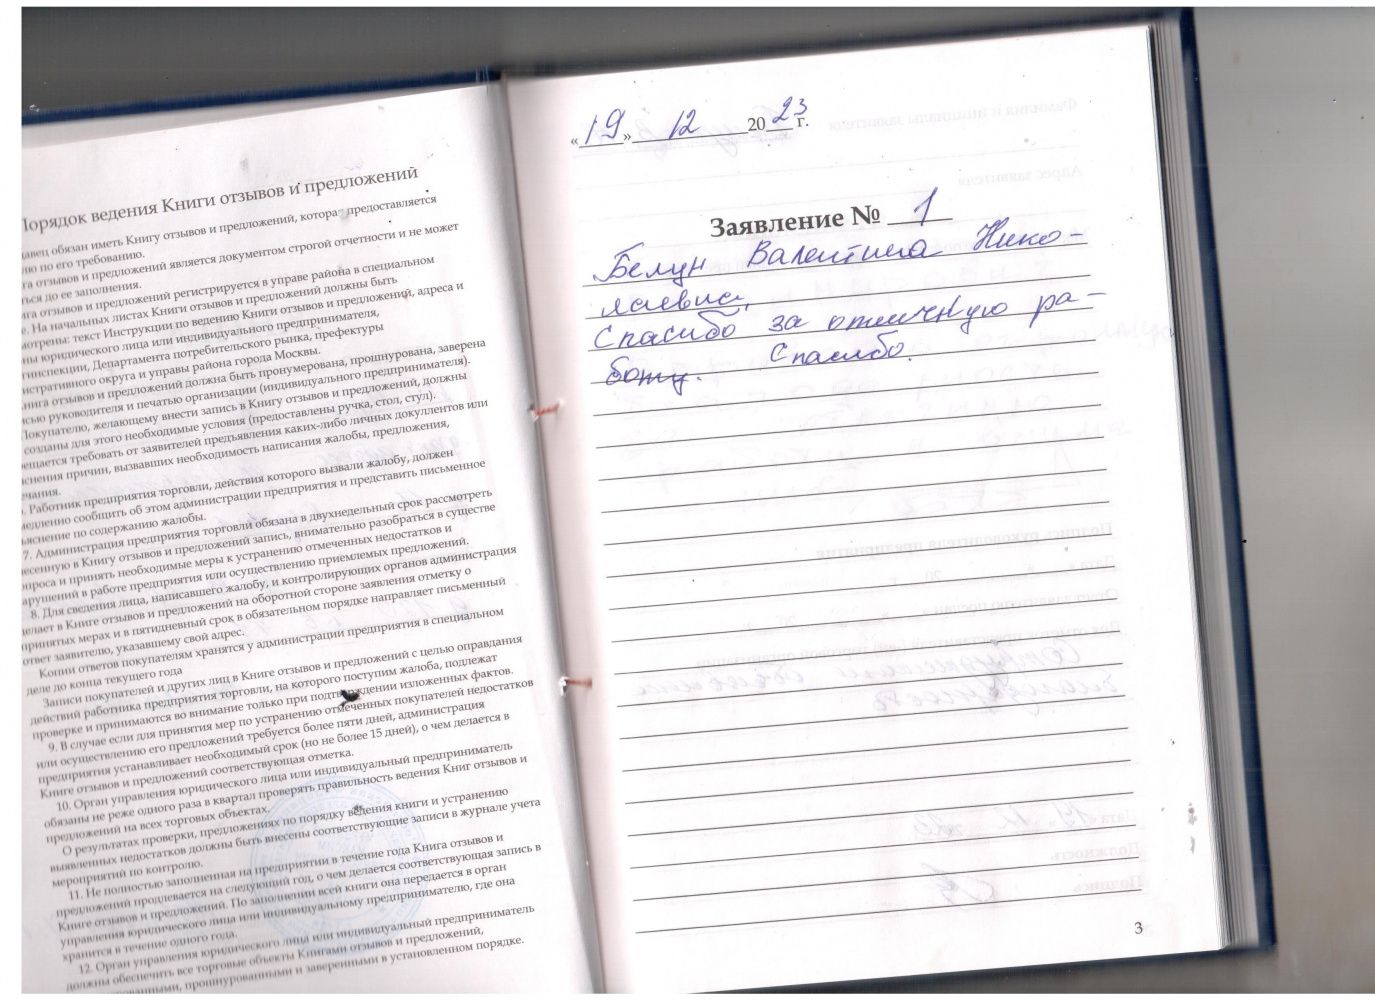 Порядок ведения Книги отзывов и предложений
давец обязан иметь Книгу отзывов и предложений, которая предоставляется
лю по его требованию.
га отзывов и предложений является документом строгой отчетности и не может
ться до ее заполнения.
га отзывов и предложений регистрируется в управе района в специальном
е. На начальных листах Книги отзывов и предложений должны быть
мотрены: текст Инструкции по ведению Книги отзывов и предложений, адреса и
ны юридического лица или индивидуального предпринимателя,
гинспекции, Департамента потребительского рынка, префектуры
истративного округа и управы района города Москвы.
нига отзывов и предложений должна быть пронумерована, прошнурована, заверена
сью руководителя и печатью организации (индивидуального предпринимателя).
Покупателю, желающему внести запись в Книгу отзывов и предложений, должны
созданы для этого необходимые условия (предоставлены ручка, стол, стул).
ещается требовать от заявителей предъявления каких-либо личных докуллентов или
яснения причин, вызвавших необходимость написания жалобы, предложения,
чания.
. Работник предприятия торговли, действия которого вызвали жалобу, должен
медленно сообщить об этом администрации предприятия и представить письменное
ъяснение по содержанию жалобы.
7. Администрация предприятия торговли обязана в двухнедельный срок рассмотреть
несенную в Книгу отзывов и предложений запись, внимательно разобраться в существе
опроса и принять необходимые меры к устранению отмеченных недостатков и
арушений в работе предприятия или осуществлению приемлемых предложений.
8. Для сведения лица, написавшего жалобу, и контролирующих органов администрация
делает в Книге отзывов и предложений на оборотной стороне заявления отметку о
принятых мерах и в пятидневный срок в обязательном порядке направляет письменный
ответ заявителю, указавшему свой адрес.
Копии ответов покупателям хранятся у администрации предприятия в специальном
деле до конца текущего года
Записи покупателей и других лиц в Книге отзывов и предложений с целью оправдания
действий работника предприятия торговли, на которого поступим жалоба, подлежат
проверке и принимаются во внимание только при подтверждении изложенных фактов.
9. В случае если для принятия мер по устранению отмеченных покупателей недостатков
или осуществлению его предложений требуется более пяти дней, администрация
предприятия устанавливает необходимый срок (но не более 15 дней), о чем делается в
Книге отзывов и предложений соответствующая отметка.
10. Орган управления юридического лица или индивидуальный предприниматель
обязаны не реже одного раза в квартал проверять правильность ведения Книг отзывов и
предложений на всех торговых объектах.
О результатах проверки, предложениях по порядку ведения книги и устранению
выявленных недостатков должны быть внесены соответствующие записи в журнале учета
мероприятий по контролю.
11. Не полностью заполненная на предприятии в течение года Книга отзывов и
предложений продлевается на следующий год, о чем делается соответствующая запись в
Книге отзывов и предложений. По заполнении всей книги она передается в орган
управления юридического лица или индивидуальному предпринимателю, где она
хранится в течение одного года.
12. Орган управления юридического лица или индивидуальный предприниматель
должны обеспечить все торговые объекты Книгами отзывов и предложений,
ированными, прошнурованными и заверенными в установленном порядке.
«19» 12 2023 г.
Заявление № 1
Белун Валентина Нико-
лаевна,
Спасибо за отличную ра-
боту. Спасибо.
3